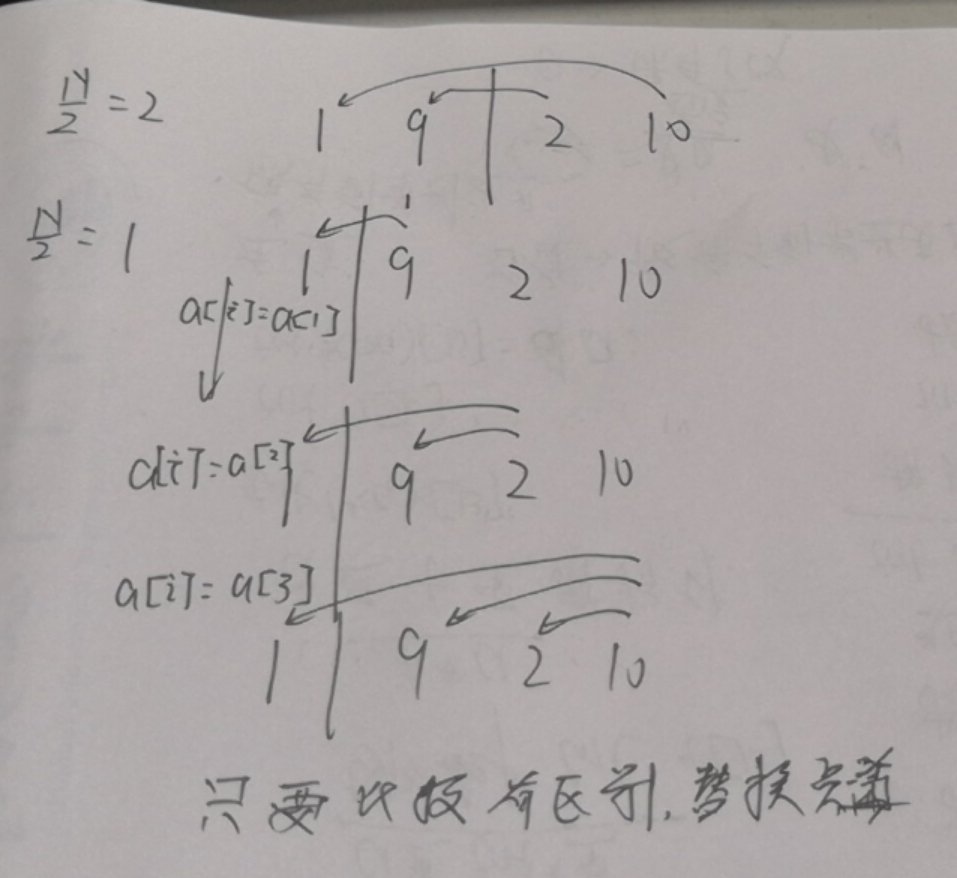 N/2 = 2 1 9 2 10
N/2 = 1 1 9 2 10
a[i]=a[1]
a[i]=a[2] 1 9 2 10
a[i]=a[3]
1 9 2 10
只要比较有区别,替换